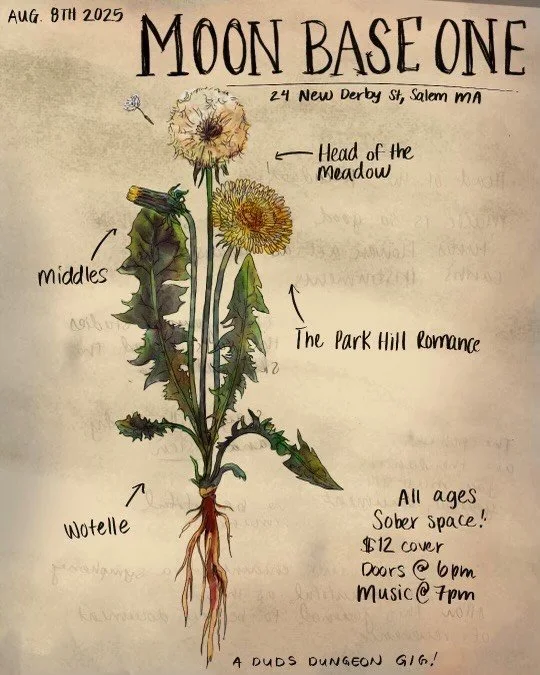 AUG. 8TH 2025
MOON BASE ONE
24 New Derby St, Salem MA
Head of the
Meadow
Middles
The Park Hill Romance
Wotelle
All ages
Sober space!
$12 cover
Doors @ 6pm
Music @ 7pm
A DUDS DUNGEON GIG!